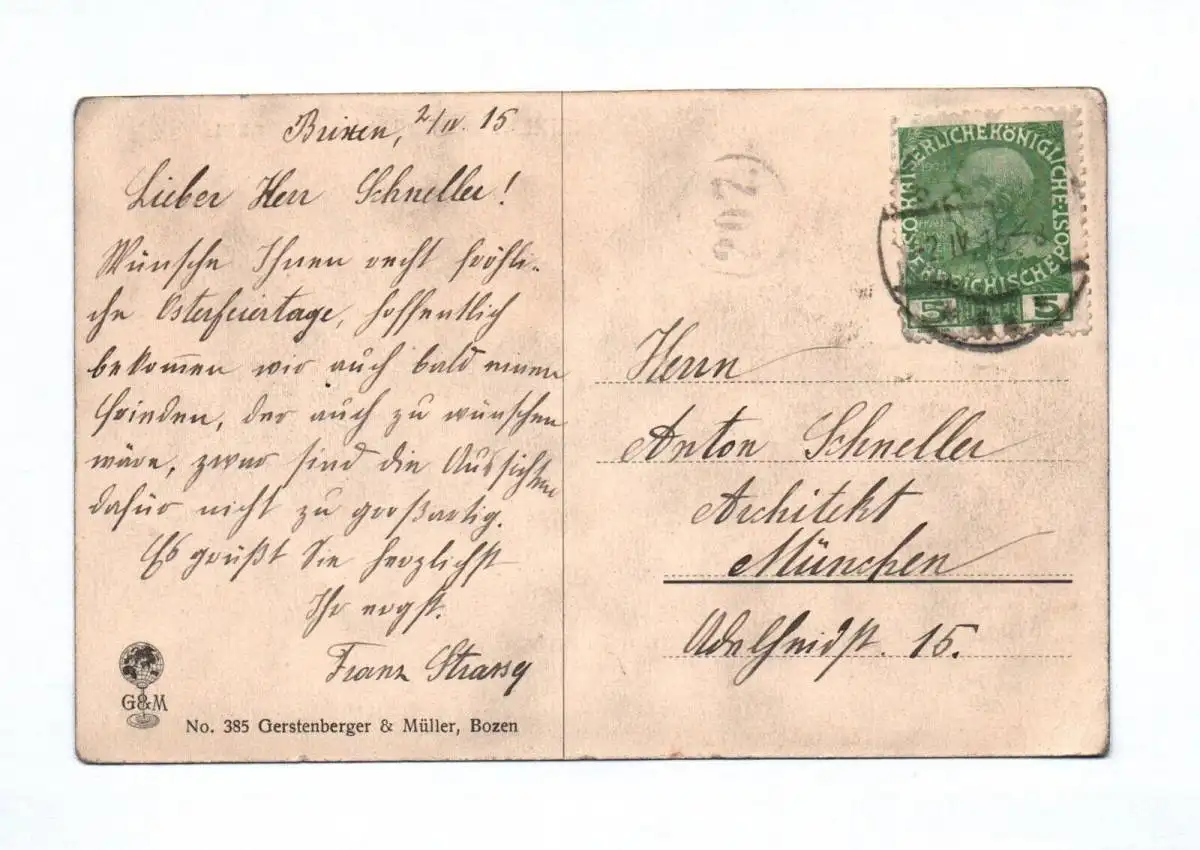 Brixen, 2/IV. 15.
Lieber Herr Schneller!
Wünsche Ihnen recht fröhli-
che Osterfeiertage, hoffentlich
bekommen wir auch bald einen
Frieden, der auch zu wünschen
wäre, zwar sind die Aussichten
dafür nicht zu großartig.
Es grüßt Sie herzlichst
Ihr ergst.
Franz
G&M
No. 385 Gerstenberger & Müller, Bozen
(202.)
KAISERLICHE KÖNIGLICHE ÖSTERREICHISCHE POST
5 5
2. IV. 15
Herrn
Anton Schneller
Architekt
München
Adelheidst. 15.